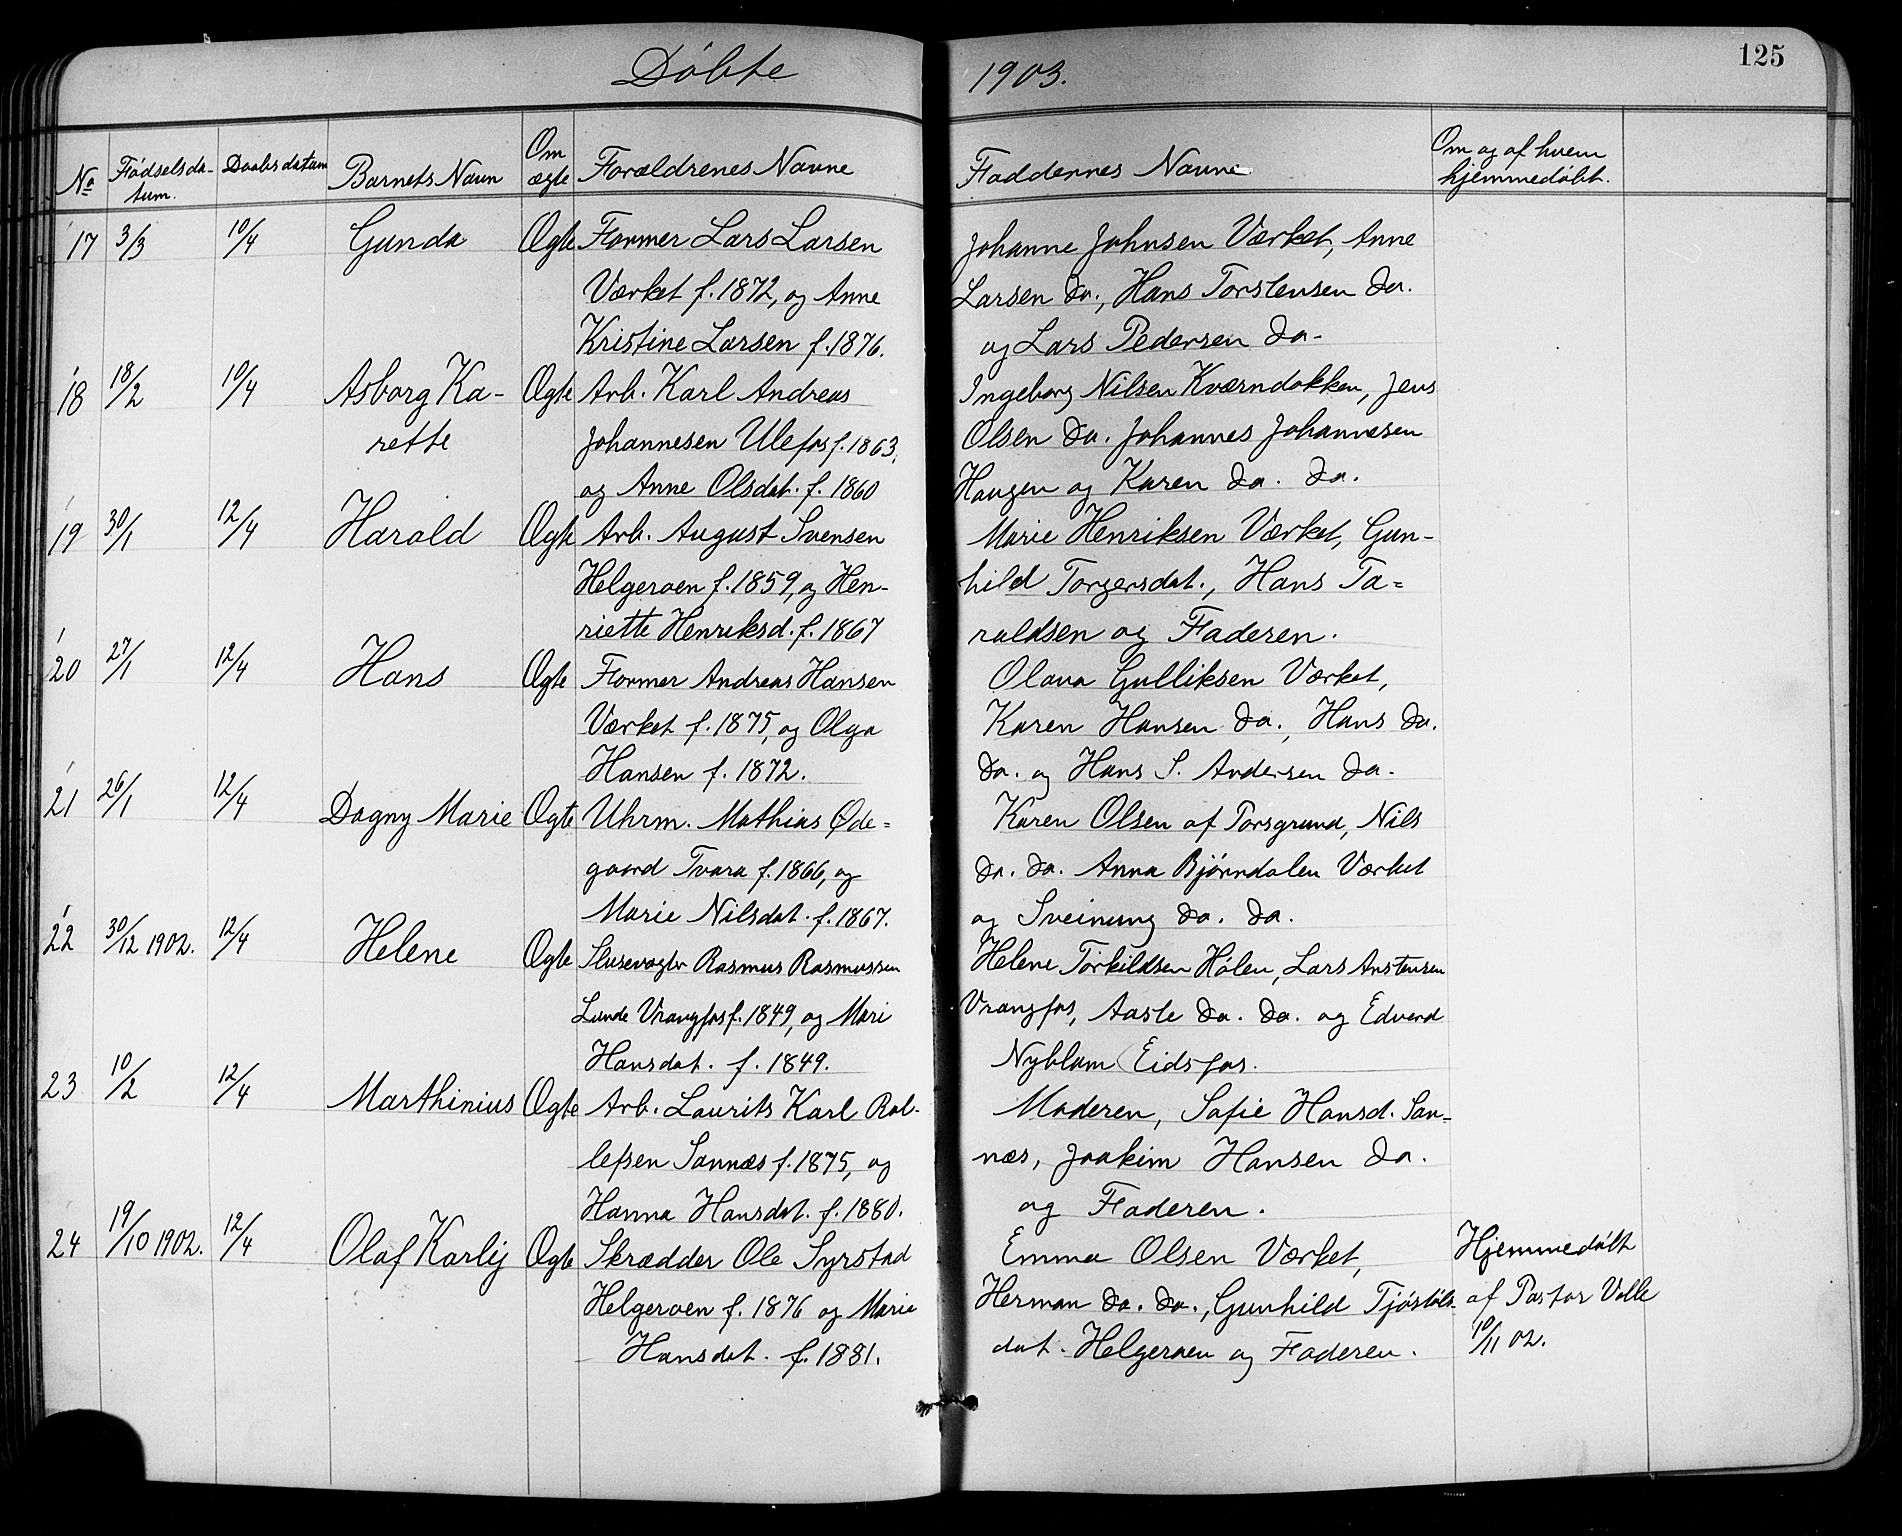 Döbte 1903. 125
No Födselsda- Daabsdatum Barnets Navn Om Forældrenes Navne Faddernes Navne Om og af hvem
tum. ægte hjemmedöbt.
17 3/3 10/4 Gunda Ægte Former Lars Larsen Johanne Johnsen Værket, Anne
Værket f. 1872, og Anne Larsen do., Hans Torstensen do.
Kristine Larsen f. 1876. og Lars Pedersen do-
18 18/2 10/4 Asborg Ka- Ægte Arb. Karl Andreas Ingeborg Nilsen Kværndokken, Jens
rette Johannesen Ulefos f. 1863, Olsen do. Johannes Johannesen
og Anne Olsdat. f. 1860 Haugen og Karen do. do.
19 30/1 12/4 Harald Ægte Arb. August Svensen Marie Henriksen Værket, Gun-
Helgeroen f. 1859, og Hen- hild Torgersdat., Hans Ta=
riette Henriksd. f. 1867 raldsen og Faderen.
20 27/1 12/4 Hans Ægte Former Andreas Hansen Olava Gulliksen Værket,
Værket f. 1875, og Olga Karen Hansen do., Hans do.
Hansen f. 1872. do. og Hans S. Andersen do.
21 26/1 12/4 Dagny Marie Ægte Uhrm. Mathias Øde= Karen Olsen af Porsgrund, Nils
gaard Tvara f. 1866, og do. do. Anna Bjørndalen Værket
Marie Nilsdat. f. 1867. og Sveinung do. do.
22 30/12 1902. 12/4 Helene Ægte Slusevogter Rasmus Rasmussen Helene Torkildsen Hölen, Lars Anstensen
Lunde Vrangfos f. 1849, og Mari Vrangfos, Aaste do. do. og Edvard
Hansdat. f. 1849. Nyblom Eidsfos.
23 10/2 12/4 Marthinius Ægte Arb. Laurits Karl Rol- Moderen, Sofie Hansd. San=
lefsen Sannæs f. 1875, og næs, Joakim Hansen do.
Hanna Hansdat. f. 1880. og Faderen.
24 19/10 1902. 12/4 Olaf Karlij Ægte Skrædder Ole Syrstad Emma Olsen Værket, Hjemmedöbt
Helgeroen f. 1876 og Marie Herman do. do., Gunhild Tjöstols- af Pastor Volle
Hansdat. f. 1881. dat. Helgeroen og Faderen. 10/11 02.